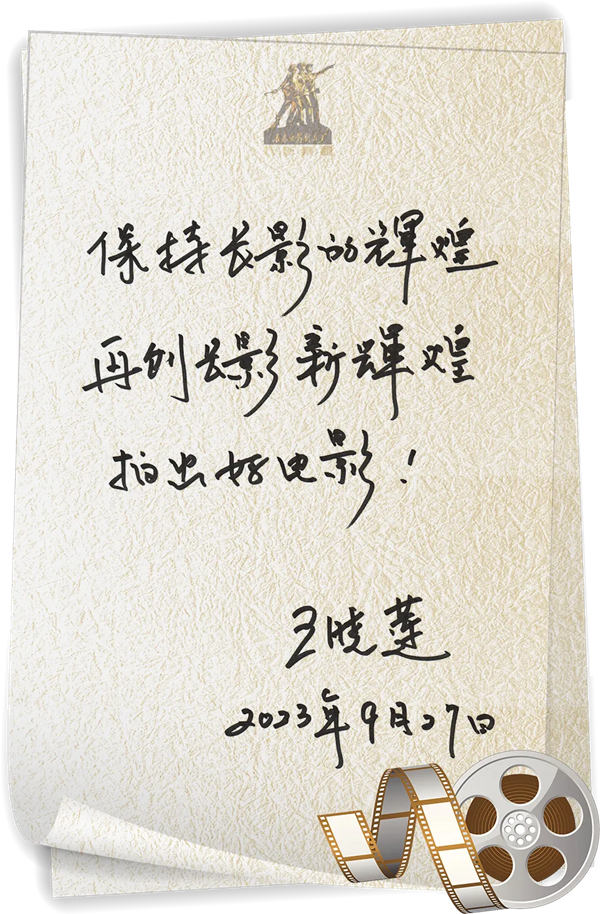 长春电影制片厂
保持长影的辉煌
再创长影新辉煌
拍出好电影！
王晓莲
2023年9月27日